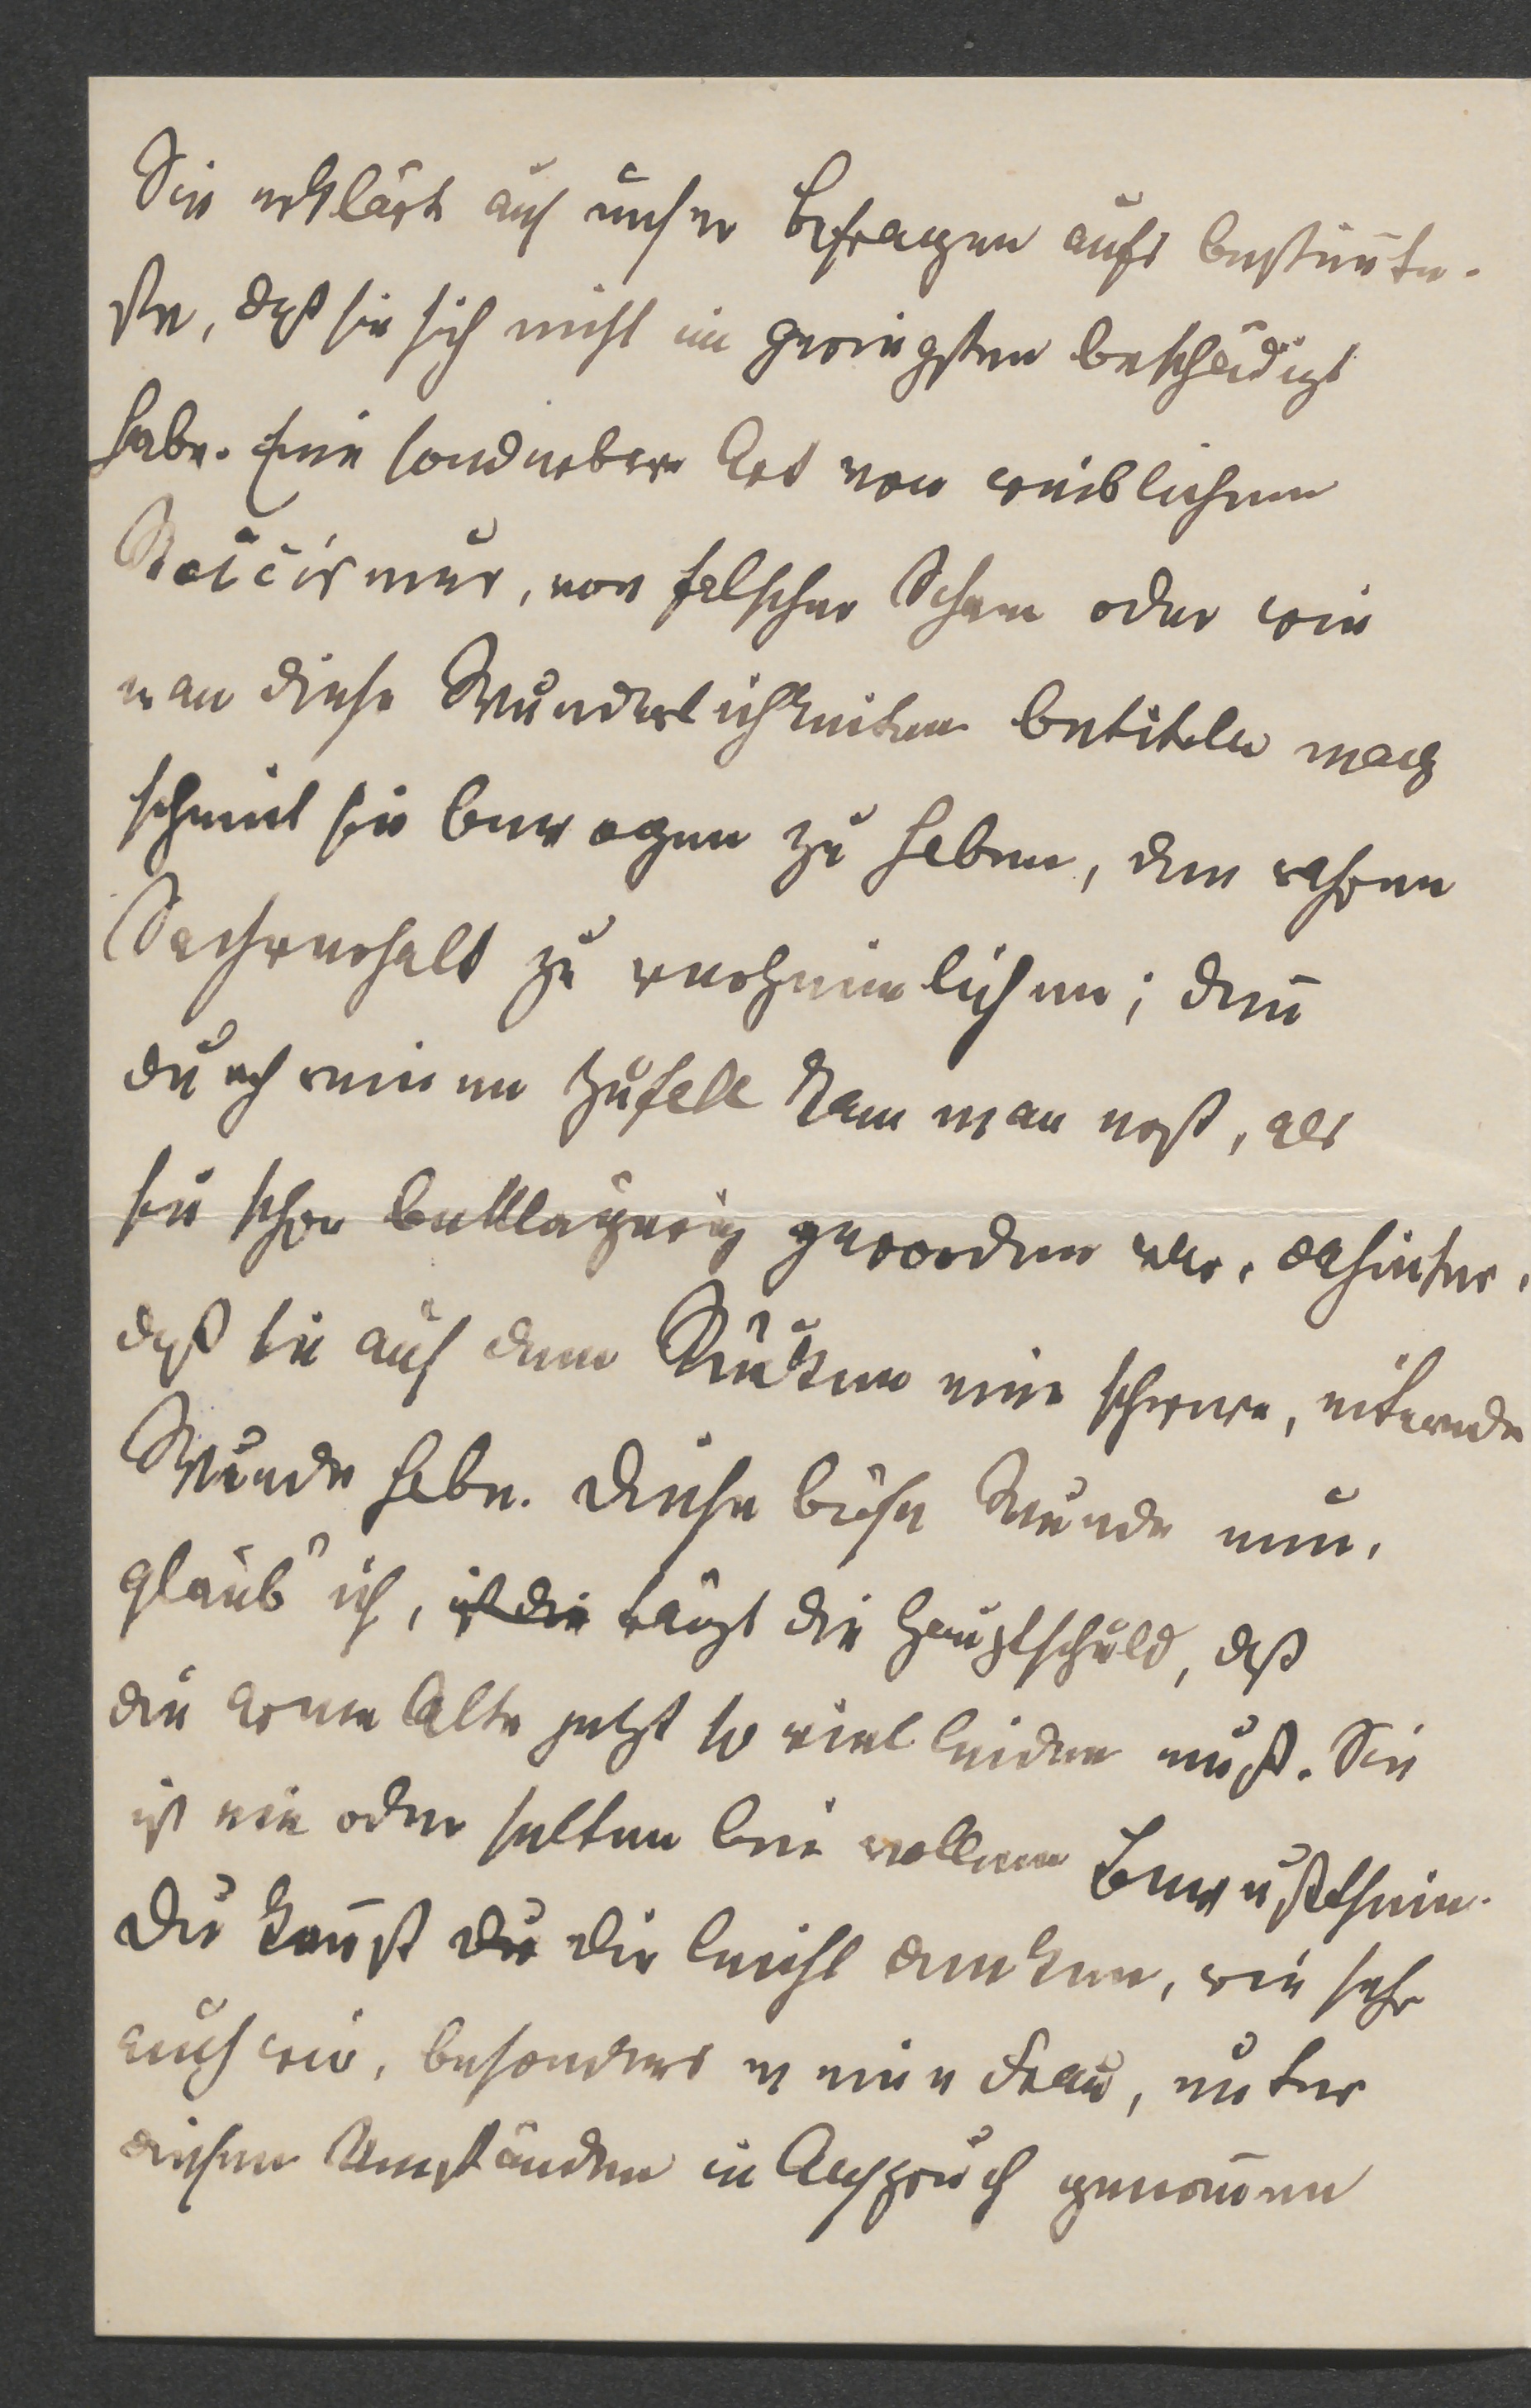 Sie erklärt auf unser Befragen aufs bestim̄te-
ste, daß sie sich nicht im geringsten beschädigt
habe. Eine sonderbare Art von weiblichem
Stoicismus, von falscher Scham oder wie
man diese Wunderlichkeiten betiteln mag
scheint sie bewogen zu haben, den wahren
Sachverhalt zu verheimlichen; den̄
durch einen Zufall kam man erst, als
sie schon bettlägerig geworden war, dahinter,
daß sie auf dem Rücken eine schwere, eiternde
Wunde habe. Diese böse Wunde nun,
glaub' ich, ist die trägt die Hauptschuld, daß
die arme Alte jetzt so viel leiden muß. Sie
ist nie oder selten bei vollem Bewußtsein.
Du kan̄st du dir leicht denken, wie sehr
auch wir, besonders meine Frau, unter
diesen Umständen in Anspruch genom̄en